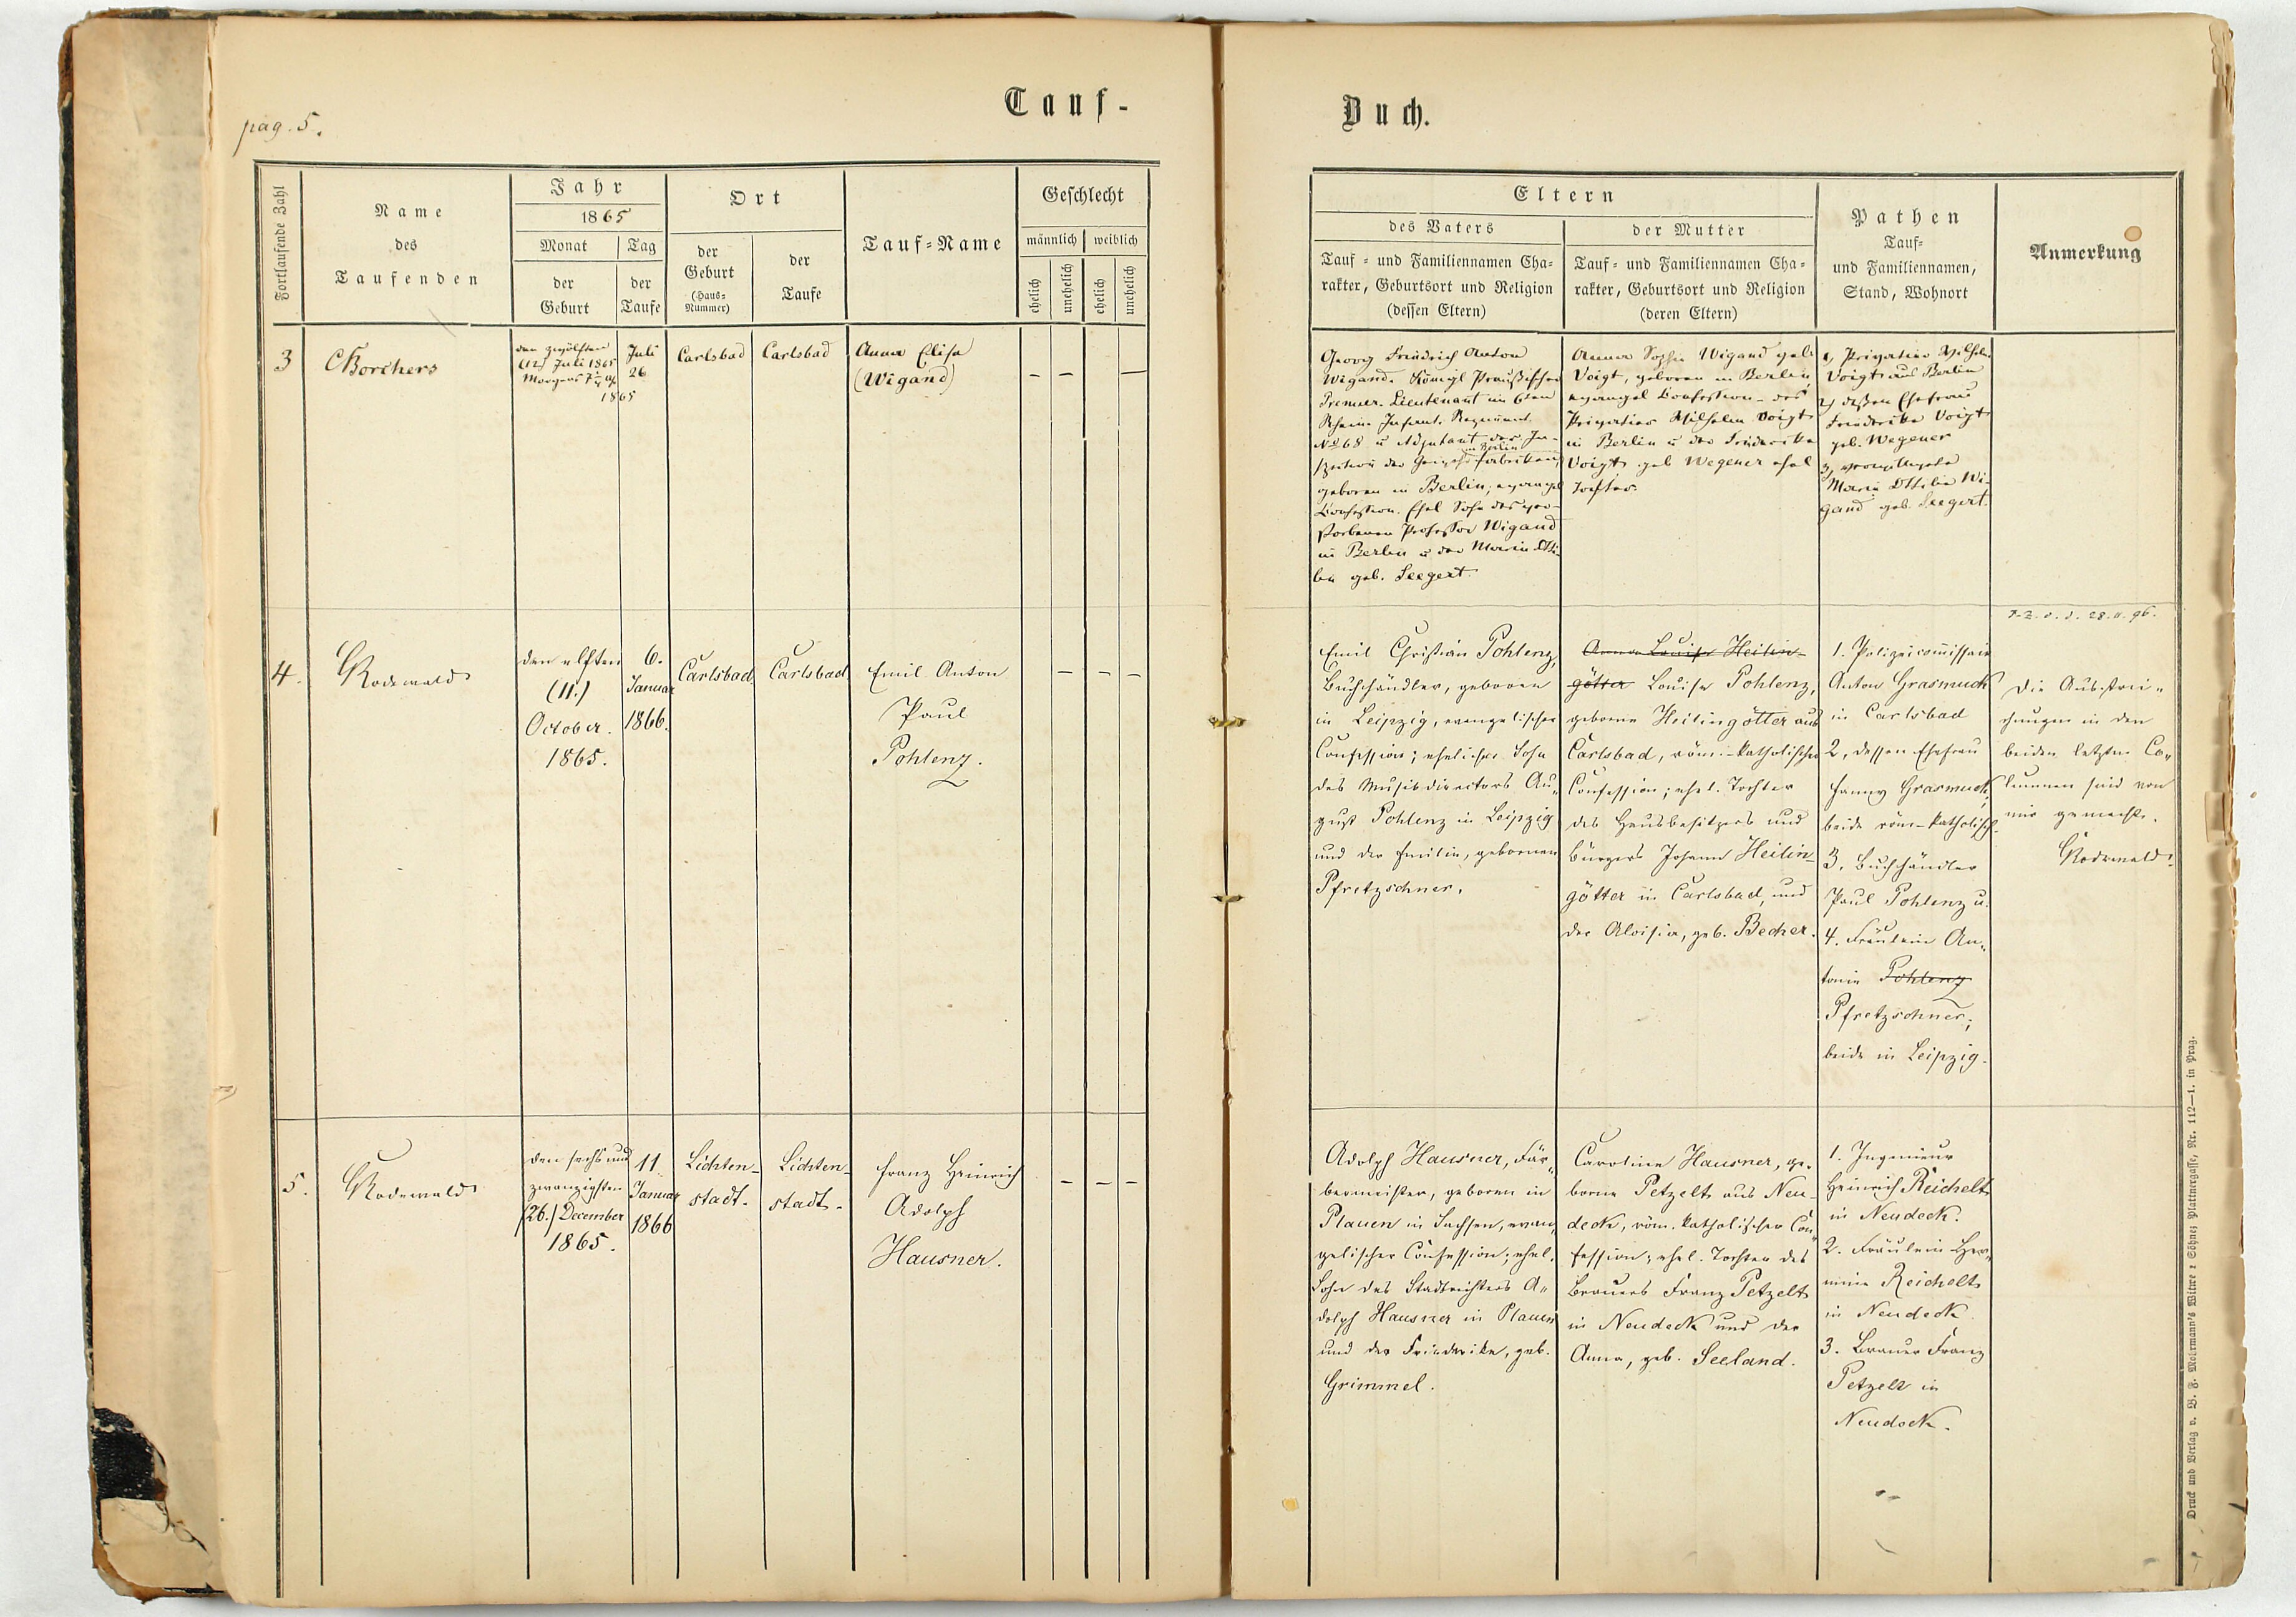 pag. 5.
Tauf-
Buch.
Fortlaufende Zahl
Name
des
Taufenden
Jahr
1865
Monat
der
Geburt
Tag
der
Taufe
Ort
der
Geburt
(Haus-
Nummer)
der
Taufe
Tauf-Name
Geschlecht
männlich
weiblich
ehelich
unehelich
ehelich
unehelich
Eltern
des Vaters
Tauf- und Familiennamen Cha-
rakter, Geburtsort und Religion
(dessen Eltern)
der Mutter
Tauf- und Familiennamen Cha-
rakter, Geburtsort und Religion
(deren Eltern)
Pathen
Tauf-
und Familiennamen,
Stand, Wohnort
Anmerkung
3
Borchers
den zwölften
(12) Juli 1865
Morgens 7¼
1865
Juli
26
Carlsbad
Carlsbad
Anna Elise
(Wigand)
– – –
Georg Friedrich Anton
Wigand, Königl Preußischer
Premier-Lieutenant im 6ten
Rhein. Infant. Regiment
No 68 u Adjutant der In-
in Berlin
spection der Gewehrfabriken,
geboren in Berlin, evangel
Confession. Ehel Sohn des ver-
storbenen Professor Wigand
in Berlin u der Marie Otti-
lie geb. Seegert.
Anna Sophie Wigand geb.
Voigt, geboren in Berlin,
evangel Confession – des
Privatier Wilhelm Voigt
in Berlin u der Friederike
Voigt geb Wegener ehel
Tochter.
1, Privatier Wilhelm
Voigt aus Berlin
2, dessen Ehefrau
Friederike Voigt
geb. Wegener
3,
Marie Ottilie Wi-
gand geb. Seegert.
4.
Rodewald
den elften
(11.)
October.
1865.
6.
Januar
1866.
Carlsbad
Carlsbad
Emil Anton
Paul
Pohlenz.
– – –
Emil Christian Pohlenz,
Buchhändler, geboren
in Leipzig, evangelischer
Confession; ehelicher Sohn
des Musikdirectors Au-
gust Pohlenz in Leipzig
und der Emilie, gebornen
Pfretzschner.
Anna Louise Heilin-
götter Louise Pohlenz,
geborne Heilingötter aus
Carlsbad, röm.-katholischer
Confession; ehel. Tochter
des Hausbesitzers und
Bürgers Johann Heilin-
götter in Carlsbad, und
der Aloisia, geb. Becher.
1. Polizeicommissair
Anton Grasmuck
in Carlsbad
2, dessen Ehefrau
Fanny Grasmuck,
beide röm-katholisch.
3, Buchhändler
Paul Pohlenz u.
4. Fräulein An-
tonie Pohlenz
Pfretzschner;
beide in Leipzig.
28.
Die Ausstrei-
chungen in den
beiden letzten Co-
lumnen sind von
mir gemacht.
Rodewald.
5.
Rodewald
den sechs und
zwanzigsten
(26.) December
1865.
11.
Januar
1866
Lichten-
stadt.
Lichten-
stadt.
Franz Heinrich
Adolph
Hausner.
– – –
Adolph Hausner, Fär-
bermeister, geboren in
Plauen in Sachsen, evan-
gelischer Confession; ehel.
Sohn des Stadtrichters A-
dolph Hausner in Plauen
und der Friederike, geb.
Grimmel.
Caroline Hausner, ge-
borne Petzelt aus Neu-
deck, röm. katholischer Con-
fession; ehel. Tochter des
Brauers Franz Petzelt
in Neudeck und der
Anna, geb. Seeland.
1. Ingenieur
Heinrich Reichelt
in Neudeck.
2. Fräulein Her-
mine Reichelt
in Neudeck
3. Brauer Franz
Petzelt in
Neudeck.
Druck und Verlag v. B. F. Moirmann's Witwe & Söhne, Plattnergasse, Nr. 112—1. in Prag.